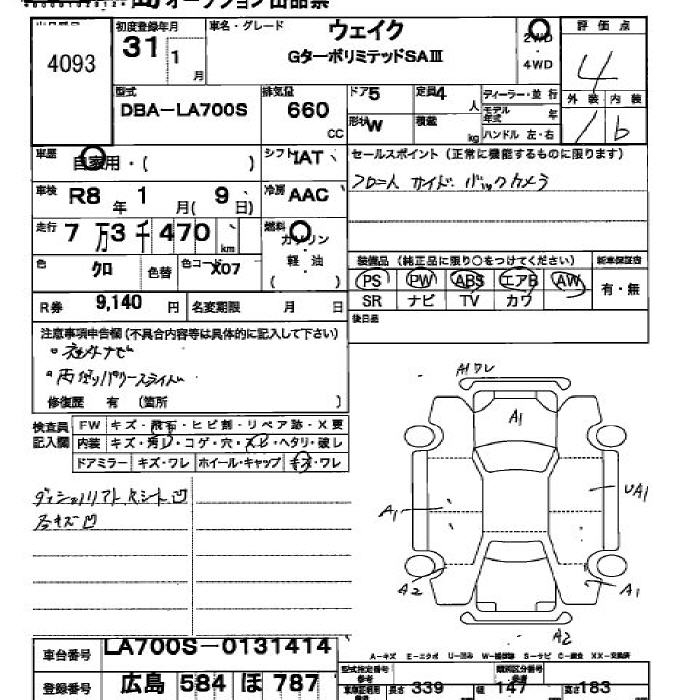 オークション出品票
4093
初度登録年月
31 1 月
車名・グレード
ウェイク
GターボリミテッドSAⅢ
2WD
・
4WD
評価点
4
外装 内装
1 b
型式
DBA-LA700S
排気量
660
CC
ドア 5
定員 4 人
形状 W
積載 kg
ディーラー・並行
モデル年式 年
ハンドル 左・右
車歴
自家用・( )
シフト IAT
車検 R8 年 1 月( 9 日)
冷房 AAC
走行 7万3千470 km
燃料
ガソリン
軽・油
( )
色 クロ
色替
色コード X07
R券 9,140 円
名変期限 月 日
セールスポイント(正常に機能するものに限ります)
フロント サイド・バックカメラ
装備品(純正品に限り○をつけてください)
新車保証書
PS PW ABS エアB AW
有・無
SR ナビ TV カワ
後日品
注意事項申告欄(不具合内容等は具体的に記入して下さい)
・社外ナビ
・両側パワースライド
修復歴 有 (箇所 )
検査員
記入欄
FW キズ・飛石・ヒビ割・リペア跡・X要
内装 キズ・汚レ・コゲ・穴・スレ・ヘタリ・破レ
ドアミラー キズ・ワレ ホイール・キャップ キズ・ワレ
凹
凹
A1
A1
A1
UA1
A2
A1
A2
A-キズ E-エクボ U-凹み W-補修跡 S-サビ C-腐食 XX-交換済
車台番号 LA700S-0131414
登録番号 広島 584 ほ 787
型式指定番号
参考
類別区分番号
参考
長さ 339 幅 147 高さ 183